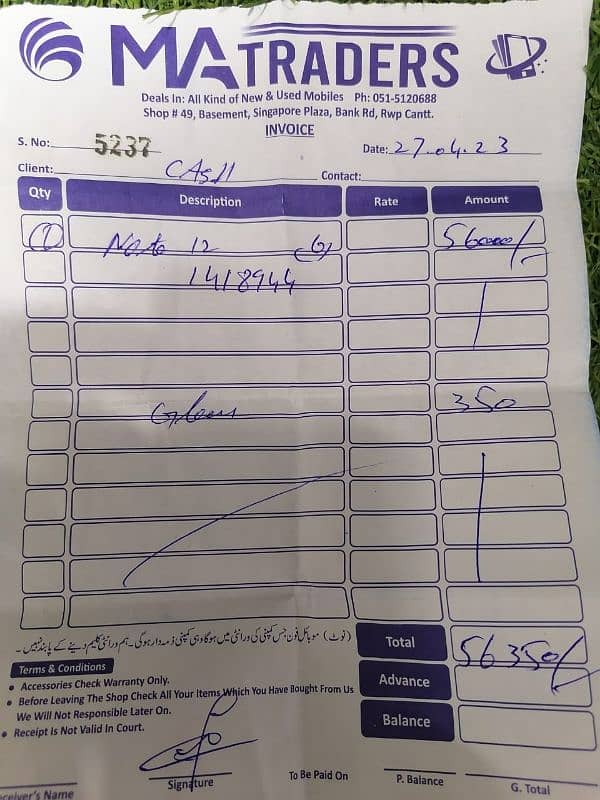 MA TRADERS
Deals In: All Kind of New & Used Mobiles Ph: 051-5120688
Shop # 49, Basement, Singapore Plaza, Bank Rd, Rwp Cantt.
INVOICE
S. No: 5237 Date: 27.04.23
Client: CASH Contact:
Qty Description Rate Amount
1 Note 12 56000/-
1418944
Glass 350
(نوٹ) موبائل فون جس کمپنی کی ورانٹی میں ہوگا وہی کمپنی ذمہ دار ہوگی۔ ہم ورانٹی کلیم دینے کے پابند نہیں۔
Total 56350/-
Terms & Conditions
Advance
• Accessories Check Warranty Only.
• Before Leaving The Shop Check All Your Items Which You Have Bought From Us
We Will Not Responsible Later On.
Balance
• Receipt Is Not Valid In Court.
Receiver's Name Signature To Be Paid On P. Balance G. Total